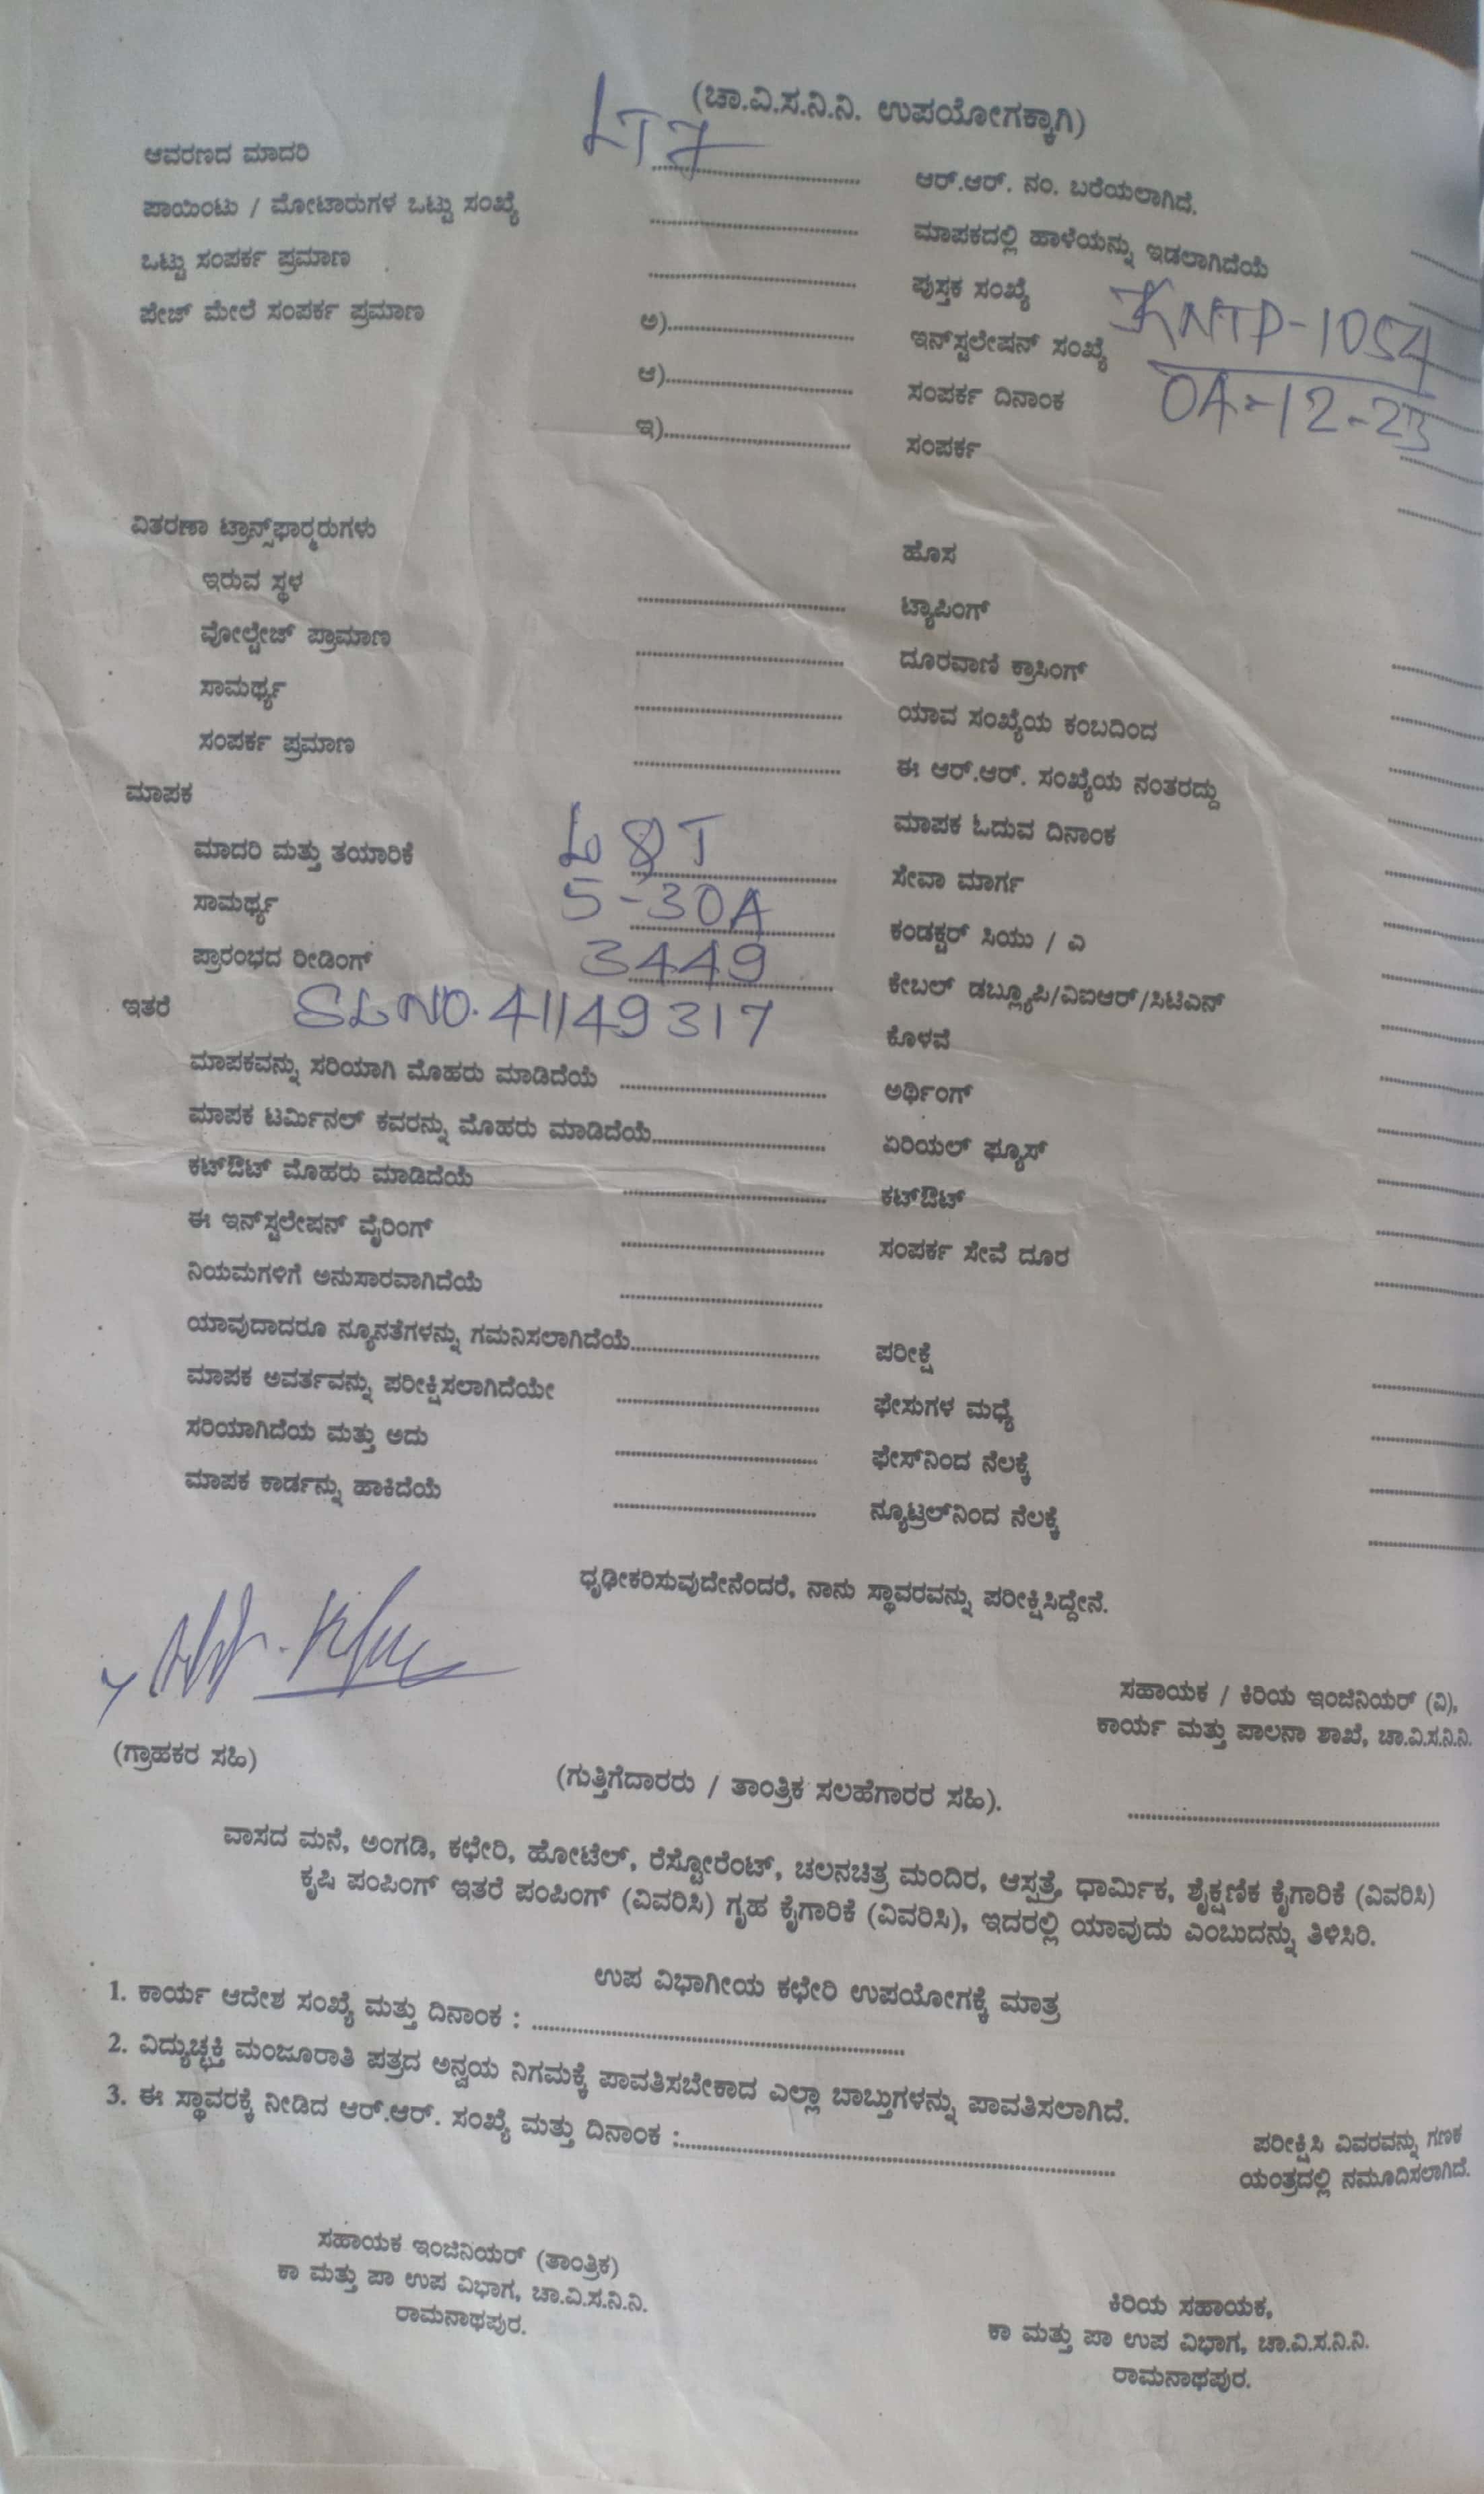 (ಚಾ.ವಿ.ಸ.ನಿ.ನಿ. ಉಪಯೋಗಕ್ಕಾಗಿ)
ಆವರಣದ ಮಾದರಿ LT7 ಆರ್.ಆರ್. ನಂ. ಬರೆಯಲಾಗಿದೆ.
ಪಾಯಿಂಟು / ಮೋಟಾರುಗಳ ಒಟ್ಟು ಸಂಖ್ಯೆ ಮಾಪಕದಲ್ಲಿ ಹಾಳೆಯನ್ನು ಇಡಲಾಗಿದೆಯೆ
ಒಟ್ಟು ಸಂಪರ್ಕ ಪ್ರಮಾಣ ಪುಸ್ತಕ ಸಂಖ್ಯೆ
ಪೇಜ್ ಮೇಲೆ ಸಂಪರ್ಕ ಪ್ರಮಾಣ ಅ) ಇನ್‌ಸ್ಟಲೇಷನ್ ಸಂಖ್ಯೆ KNTP-1054
ಆ) ಸಂಪರ್ಕ ದಿನಾಂಕ 04-12-23
ಇ) ಸಂಪರ್ಕ
ವಿತರಣಾ ಟ್ರಾನ್ಸ್‌ಫಾರ್‍ಮರುಗಳು ಹೊಸ
ಇರುವ ಸ್ಥಳ ಟ್ಯಾಪಿಂಗ್
ವೋಲ್ಟೇಜ್ ಪ್ರಾಮಾಣ ದೂರವಾಣಿ ಕ್ರಾಸಿಂಗ್
ಸಾಮರ್ಥ್ಯ ಯಾವ ಸಂಖ್ಯೆಯ ಕಂಬದಿಂದ
ಸಂಪರ್ಕ ಪ್ರಮಾಣ ಈ ಆರ್.ಆರ್. ಸಂಖ್ಯೆಯ ನಂತರದ್ದು
ಮಾಪಕ ಮಾಪಕ ಓದುವ ದಿನಾಂಕ
ಮಾದರಿ ಮತ್ತು ತಯಾರಿಕೆ L&T ಸೇವಾ ಮಾರ್ಗ
ಸಾಮರ್ಥ್ಯ 5-30A ಕಂಡಕ್ಟರ್ ಸಿಯು / ಎ
ಪ್ರಾರಂಭದ ರೀಡಿಂಗ್ 3449 ಕೇಬಲ್ ಡಬ್ಲ್ಯೂಪಿ/ವಿಐಆರ್/ಸಿಟಿಎನ್
ಇತರೆ SL NO. 41149317 ಕೊಳವೆ
ಮಾಪಕವನ್ನು ಸರಿಯಾಗಿ ಮೊಹರು ಮಾಡಿದೆಯೆ ಅರ್ಥಿಂಗ್
ಮಾಪಕ ಟರ್ಮಿನಲ್ ಕವರನ್ನು ಮೊಹರು ಮಾಡಿದೆಯೆ ಏರಿಯಲ್ ಫ್ಯೂಸ್
ಕಟ್‌ಔಟ್ ಮೊಹರು ಮಾಡಿದೆಯೆ ಕಟ್‌ಔಟ್
ಈ ಇನ್‌ಸ್ಟಲೇಷನ್ ವೈರಿಂಗ್ ಸಂಪರ್ಕ ಸೇವೆ ದೂರ
ನಿಯಮಗಳಿಗೆ ಅನುಸಾರವಾಗಿದೆಯೆ
ಯಾವುದಾದರೂ ನ್ಯೂನತೆಗಳನ್ನು ಗಮನಿಸಲಾಗಿದೆಯೆ ಪರೀಕ್ಷೆ
ಮಾಪಕ ಅವರ್ತವನ್ನು ಪರೀಕ್ಷಿಸಲಾಗಿದೆಯೇ ಫೇಸುಗಳ ಮಧ್ಯೆ
ಸರಿಯಾಗಿದೆಯ ಮತ್ತು ಅದು ಫೇಸ್‌ನಿಂದ ನೆಲಕ್ಕೆ
ಮಾಪಕ ಕಾರ್ಡನ್ನು ಹಾಕಿದೆಯೆ ನ್ಯೂಟ್ರಲ್‌ನಿಂದ ನೆಲಕ್ಕೆ
ಧೃಢೀಕರಿಸುವುದೇನೆಂದರೆ, ನಾನು ಸ್ಥಾವರವನ್ನು ಪರೀಕ್ಷಿಸಿದ್ದೇನೆ.
ಸಹಾಯಕ / ಕಿರಿಯ ಇಂಜಿನಿಯರ್ (ವಿ),
ಕಾರ್ಯ ಮತ್ತು ಪಾಲನಾ ಶಾಖೆ, ಚಾ.ವಿ.ಸ.ನಿ.ನಿ.
(ಗ್ರಾಹಕರ ಸಹಿ) (ಗುತ್ತಿಗೆದಾರರು / ತಾಂತ್ರಿಕ ಸಲಹೆಗಾರರ ಸಹಿ).
ವಾಸದ ಮನೆ, ಅಂಗಡಿ, ಕಛೇರಿ, ಹೋಟೆಲ್, ರೆಸ್ಟೋರೆಂಟ್, ಚಲನಚಿತ್ರ ಮಂದಿರ, ಆಸ್ಪತ್ರೆ, ಧಾರ್ಮಿಕ, ಶೈಕ್ಷಣಿಕ ಕೈಗಾರಿಕೆ (ವಿವರಿಸಿ)
ಕೃಷಿ ಪಂಪಿಂಗ್ ಇತರೆ ಪಂಪಿಂಗ್ (ವಿವರಿಸಿ) ಗೃಹ ಕೈಗಾರಿಕೆ (ವಿವರಿಸಿ), ಇದರಲ್ಲಿ ಯಾವುದು ಎಂಬುದನ್ನು ತಿಳಿಸಿರಿ.
ಉಪ ವಿಭಾಗೀಯ ಕಛೇರಿ ಉಪಯೋಗಕ್ಕೆ ಮಾತ್ರ
1. ಕಾರ್ಯ ಆದೇಶ ಸಂಖ್ಯೆ ಮತ್ತು ದಿನಾಂಕ :
2. ವಿದ್ಯುಚ್ಛಕ್ತಿ ಮಂಜೂರಾತಿ ಪತ್ರದ ಅನ್ವಯ ನಿಗಮಕ್ಕೆ ಪಾವತಿಸಬೇಕಾದ ಎಲ್ಲಾ ಬಾಬ್ತುಗಳನ್ನು ಪಾವತಿಸಲಾಗಿದೆ.
3. ಈ ಸ್ಥಾವರಕ್ಕೆ ನೀಡಿದ ಆರ್.ಆರ್. ಸಂಖ್ಯೆ ಮತ್ತು ದಿನಾಂಕ :
ಪರೀಕ್ಷಿಸಿ ವಿವರವನ್ನು ಗಣಕ
ಯಂತ್ರದಲ್ಲಿ ನಮೂದಿಸಲಾಗಿದೆ.
ಸಹಾಯಕ ಇಂಜಿನಿಯರ್ (ತಾಂತ್ರಿಕ)
ಕಾ ಮತ್ತು ಪಾ ಉಪ ವಿಭಾಗ, ಚಾ.ವಿ.ಸ.ನಿ.ನಿ.
ರಾಮನಾಥಪುರ.
ಕಿರಿಯ ಸಹಾಯಕ,
ಕಾ ಮತ್ತು ಪಾ ಉಪ ವಿಭಾಗ, ಚಾ.ವಿ.ಸ.ನಿ.ನಿ.
ರಾಮನಾಥಪುರ.